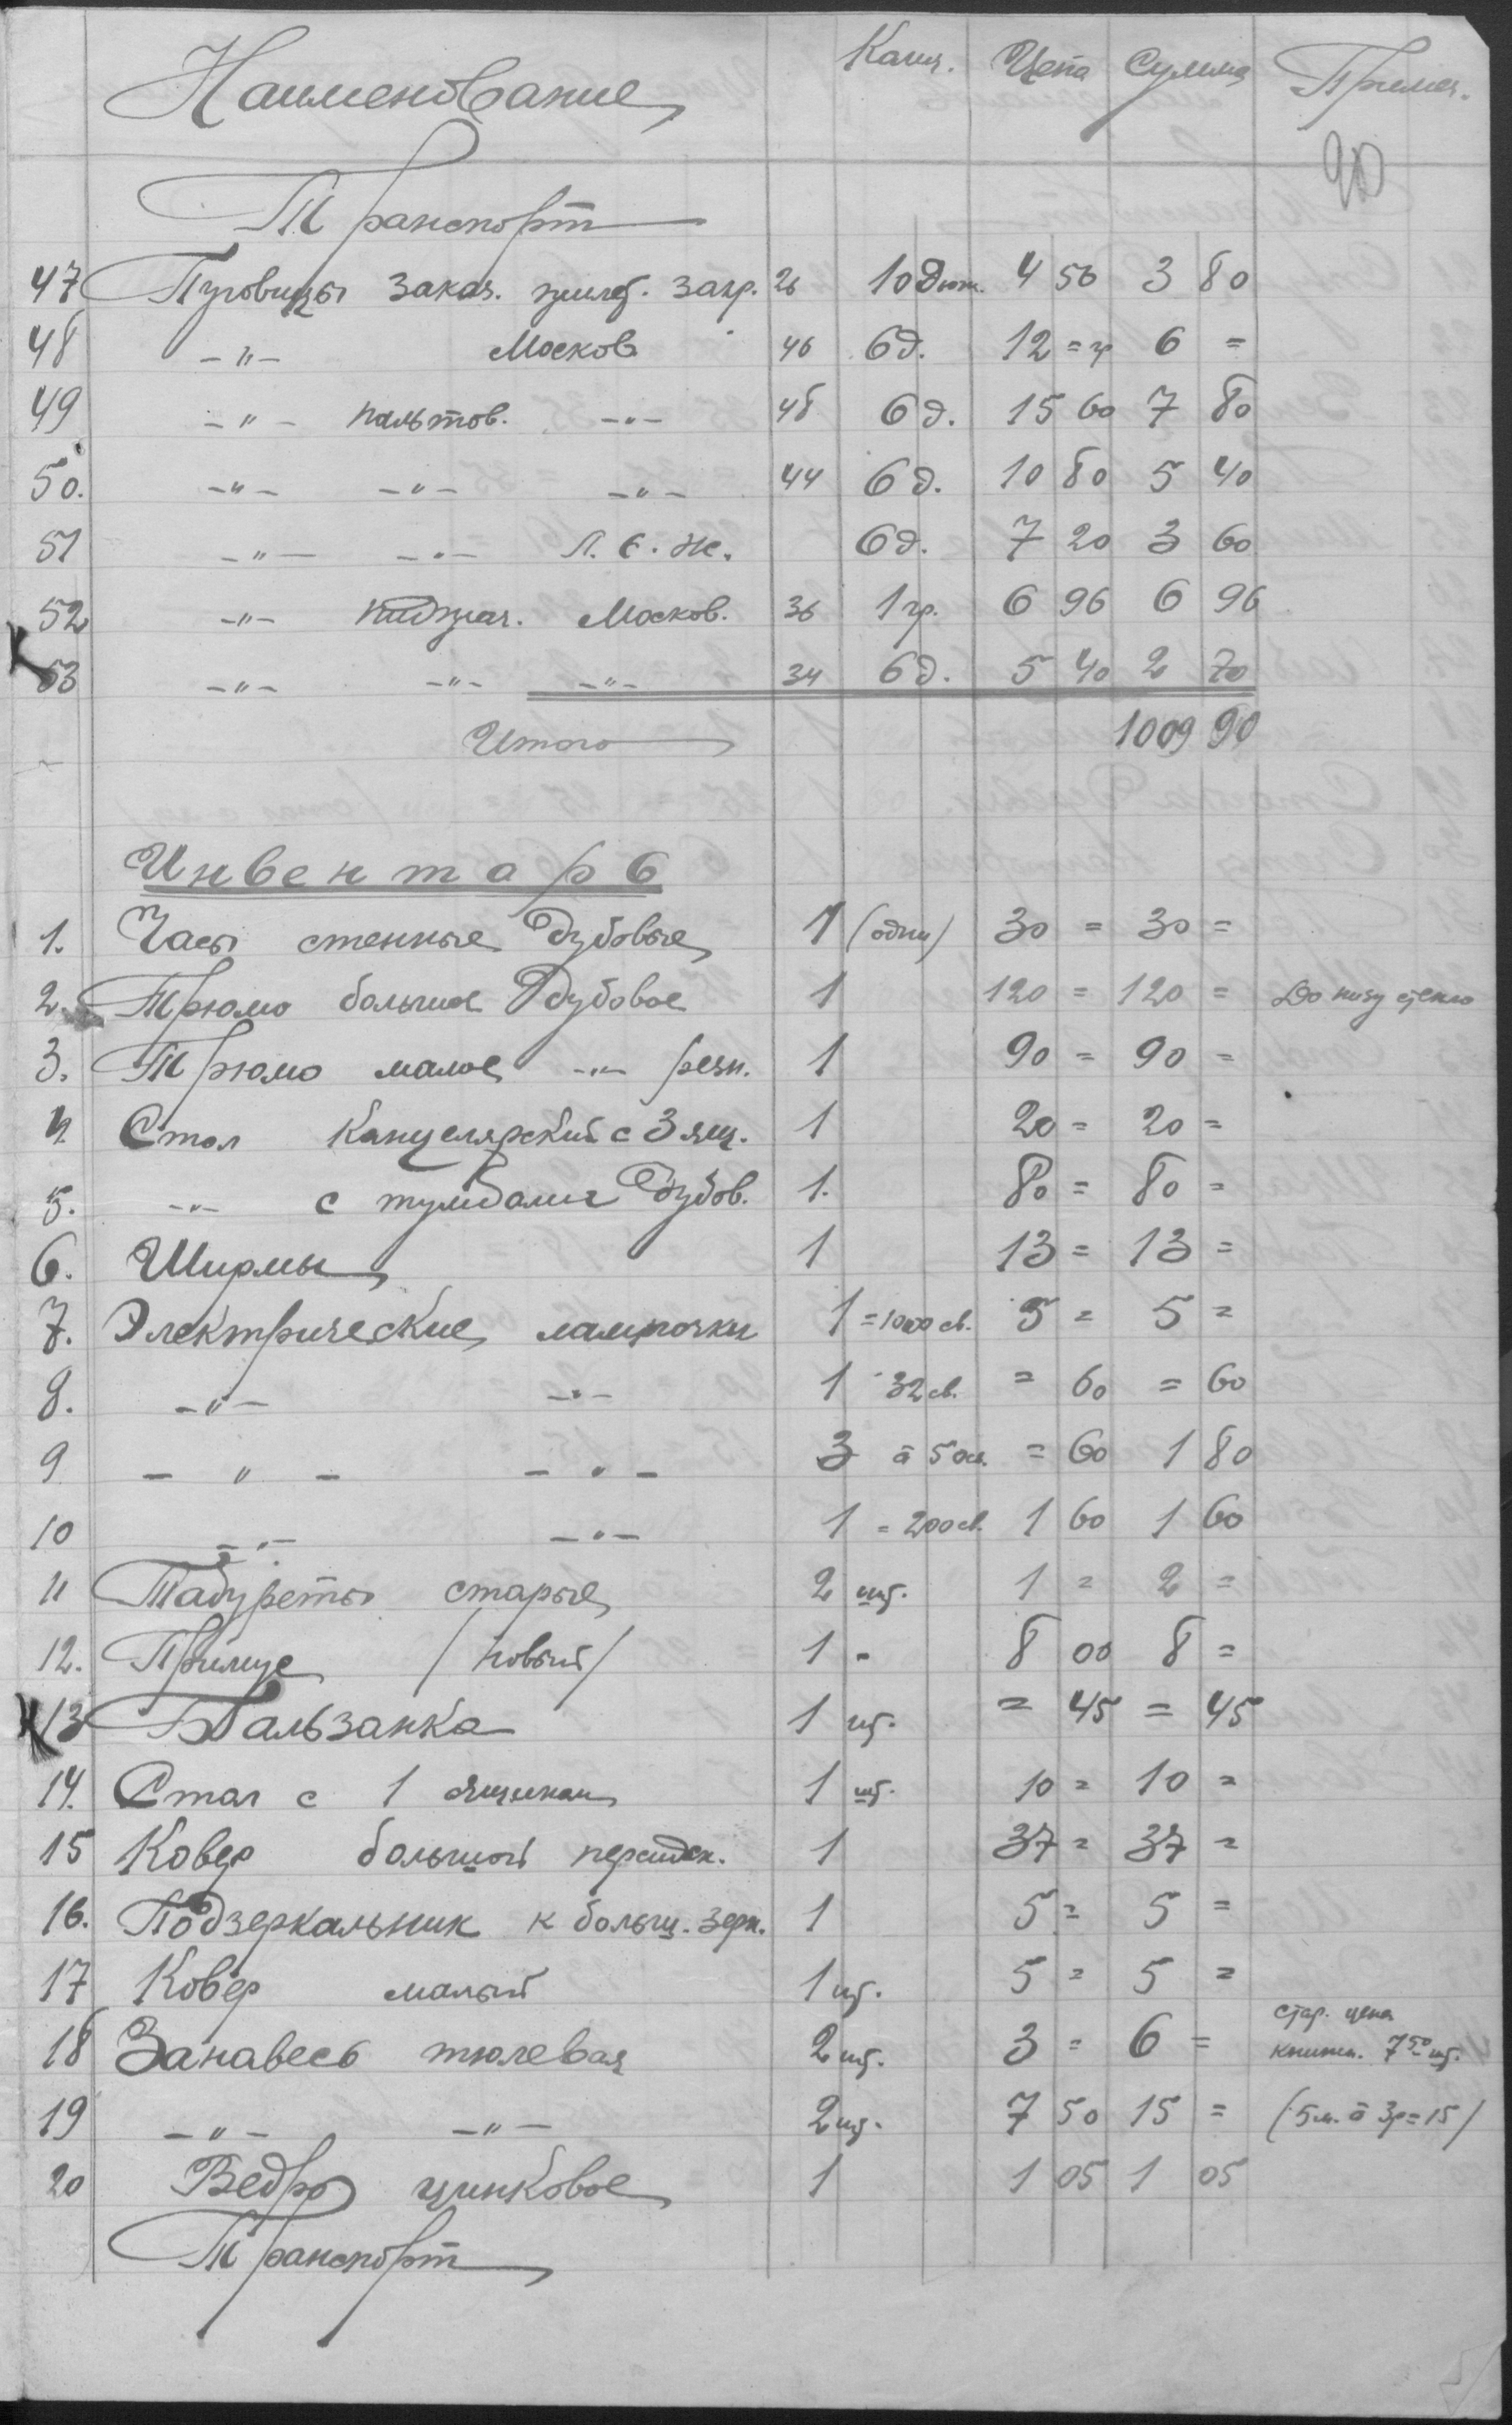 Наименование Колич. Цена Сумма Примеч.
90
Транспорт
47 Пуговицы заказ. загр. 26 10 дюж. 4 50 3 80
48 -"- Москов 46 6 д. 12 = гр 6 =
49 -"- пальтов. -"- 48 6 д. 15 60 7 80
50. -"- -"- -"- 44 6 д. 10 80 5 40
51 -"- -"- Л. Е. Ж. 6 д. 7 20 3 60
52 -"- пиджач. Москов. 36 1 гр. 6 96 6 96
53 -"- -"- -"- 34 6 д. 5 40 2 70
Итого 1009 90
Инвентарь
1. Часы стенные дубовые 1 (одни) 30 = 30 =
2. Трюмо большое дубовое 1 120 = 120 = До низу стекло
3. Трюмо малое -"- резн. 1 90 = 90 =
4 Стол канцелярский с 3 ящ. 1 20 = 20 =
5. -"- с тумбами дубов. 1. 80 = 80 =
6. Ширмы 1 13 = 13 =
7. Электрические лампочки 1 = 1000 св. 5 = 5 =
8. -"- -"- 1 32 св. = 60 = 60
9 - " - - " - 3 à 50 св. = 60 1 80
10 -"- -"- 1 = 200 св. 1 60 1 60
11 Табуреты старые 2 шт. 1 = 2 =
12. Примус /новый/ 1 - 8 00 8 =
13 Бальзанка 1 шт. = 45 = 45
14. Стол с 1 ящиком 1 шт. 10 = 10 =
15 Ковер большой персидск. 1 37 = 37 =
16. Подзеркальник к больш. зерк. 1 5 = 5 =
17 Ковер малый 1 шт. 5 = 5 =
18 Занавесь тюлевая 2 шт. 3 = 6 = стар. цена
книжн. 7 50 шт.
19 -"- -"- 2 шт. 7 50 15 = (5 м. à 3 р = 15/
20 Ведро цинковое 1 1 05 1 05
Транспорт